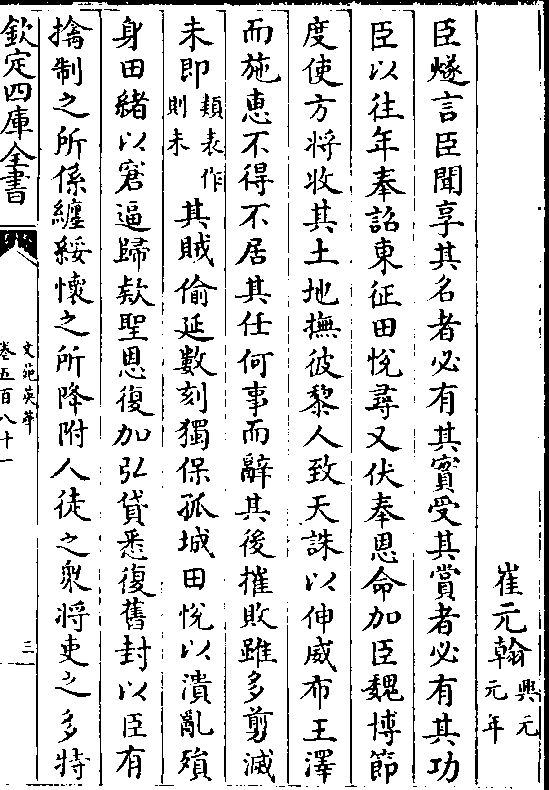 崔元翰興元元年
臣燧言臣聞享其名者必有其實受其賞者必有其功
臣以往年奉詔東征田悅尋又伏奉恩命加臣魏博節
度使方將收其土地撫彼黎人致天誅以伸威布王澤
而施恵不得不居其任何事而辭其後摧敗雖多剪滅
未即類表作則未其賊偷延數刻獨保孤城田悅以潰亂殞
身田緒以窘逼歸欵聖恩復加弘貸悉復舊封以臣有
擒制之所係纏綏懷之所降附人徒之衆將吏之多特
欽定四庫全書
文苑英華
卷五百八十一
三